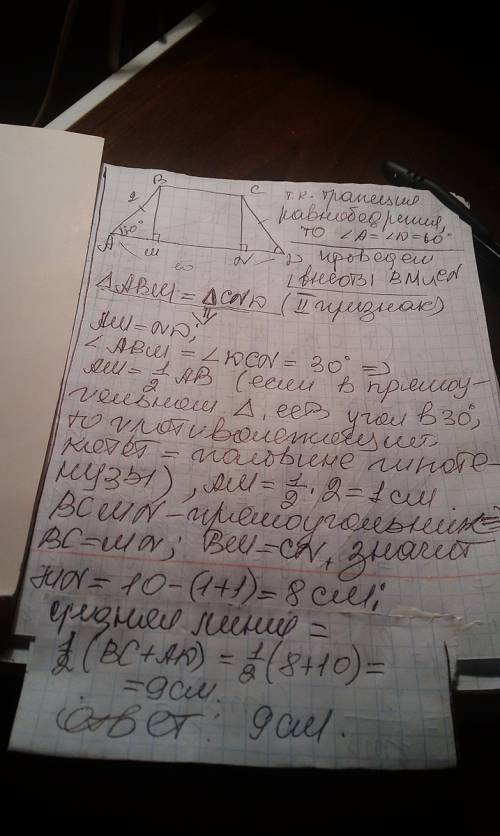 B
C
2
30°
A
M
N
D
т.к. трапеция
равнобедренная,
то ∠A=∠D=60°
проведем
высоты BM и CN
△ABM = △CND (II признак)
⇓
AM=ND;
∠ABM = ∠DCN = 30° ⇒
AM = 1/2 AB (если в прямоу-
гольном △, есть угол в 30°,
то противолежащий
катет = половине гипоте-
нузы), AM = 1/2 · 2 = 1 см
BCMN - прямоугольник ⇒
BC=MN; BM=CN, значит
MN = 10-(1+1) = 8 см;
средняя линия =
1/2 (BC+AD) = 1/2 (8+10) =
= 9 см
Ответ: 9 см.